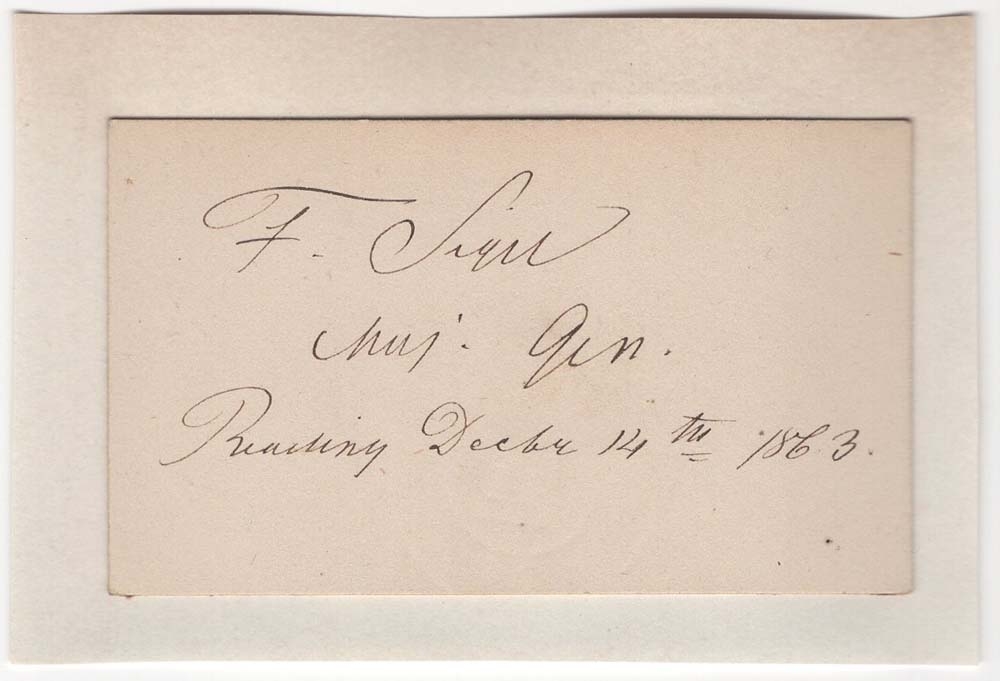 F. Sigel
Maj. Gen.
Reading Decbr 14th 1863.